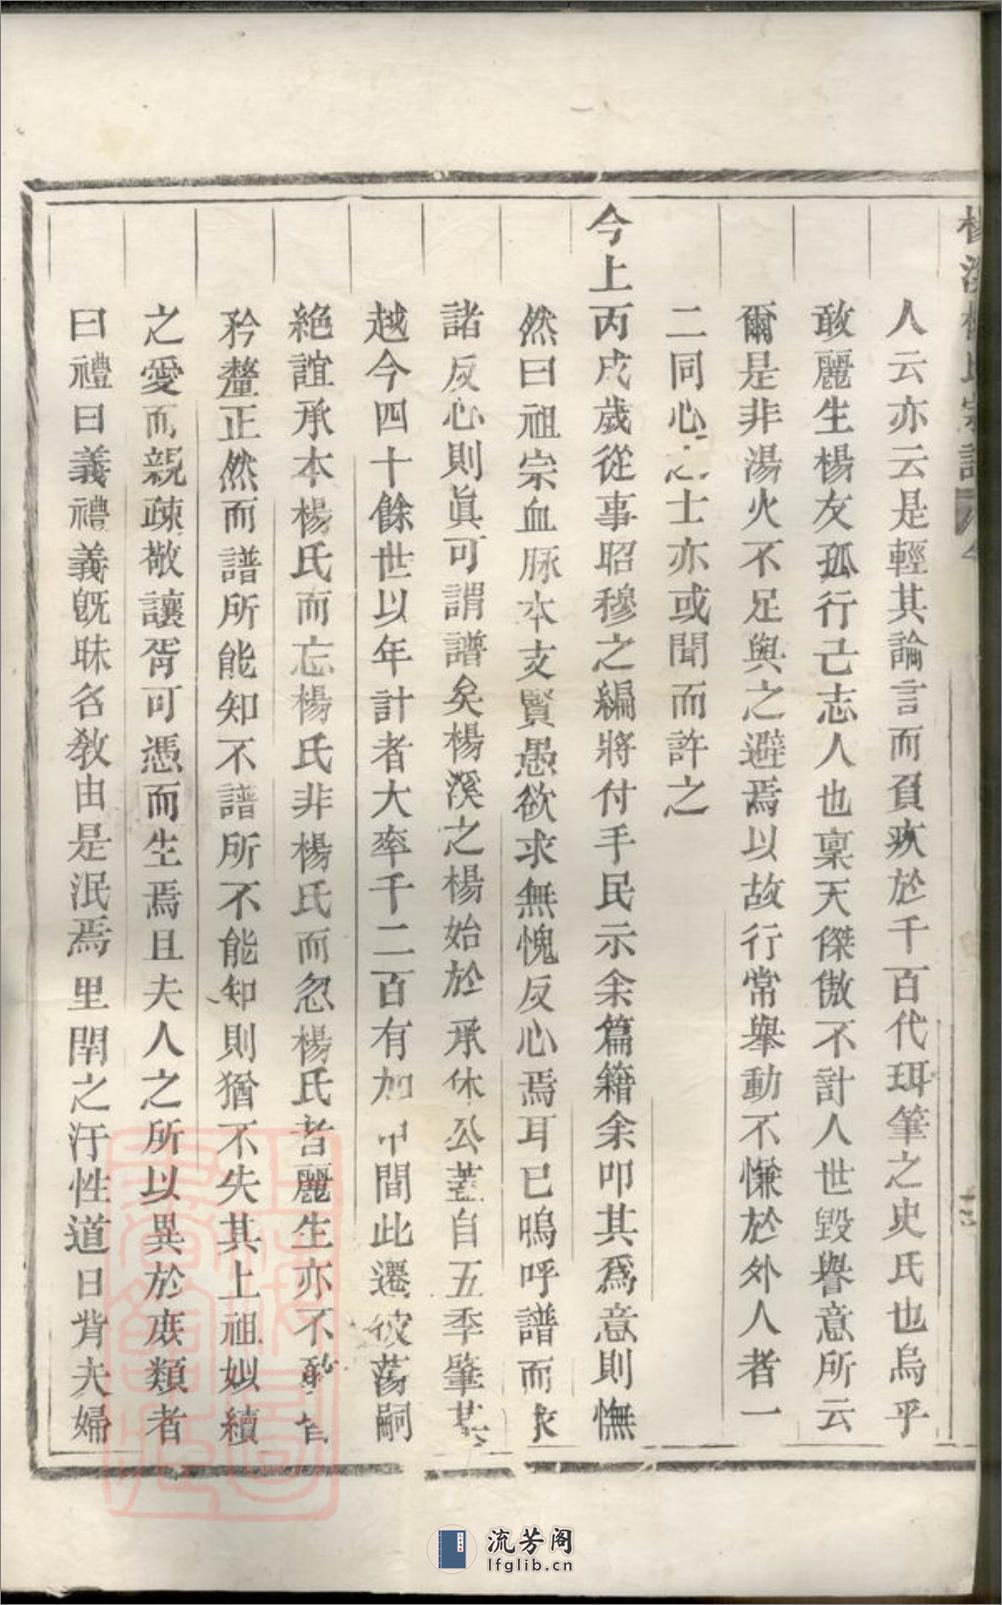 楊溪楊氏宗譜
人云亦云是輕其論言而負疚於千百代珥筆之史氏也烏乎
敢麗生楊友孤行己志人也稟天傑傲不計人世毀譽意所云
爾是非湯火不足與之避焉以故行常舉動不慊於外人者一
二同心之士亦或聞而許之
今上丙戌歲從事昭穆之編將付手民示余篇籍余叩其爲意則憮
然曰祖宗血脉本支賢愚欲求無愧反心焉耳已嗚呼譜而求
諸反心則眞可謂譜矣楊溪之楊始於承休公蓋自五季肇基
越今四十餘世以年計者大率千二百有加中間此遷彼蕩嗣
絶誼承本楊氏而忘楊氏非楊氏而忽楊氏者麗生亦不
矜釐正然而譜所能知不譜所不能知則猶不失其上祖姒續
之愛而親疎敬讓胥可憑而生焉且夫人之所以異於庶類者
曰禮曰義禮義旣昧名敎由是泯焉里閈之汙性道日背夫婦
流芳阁
lfglib.cn